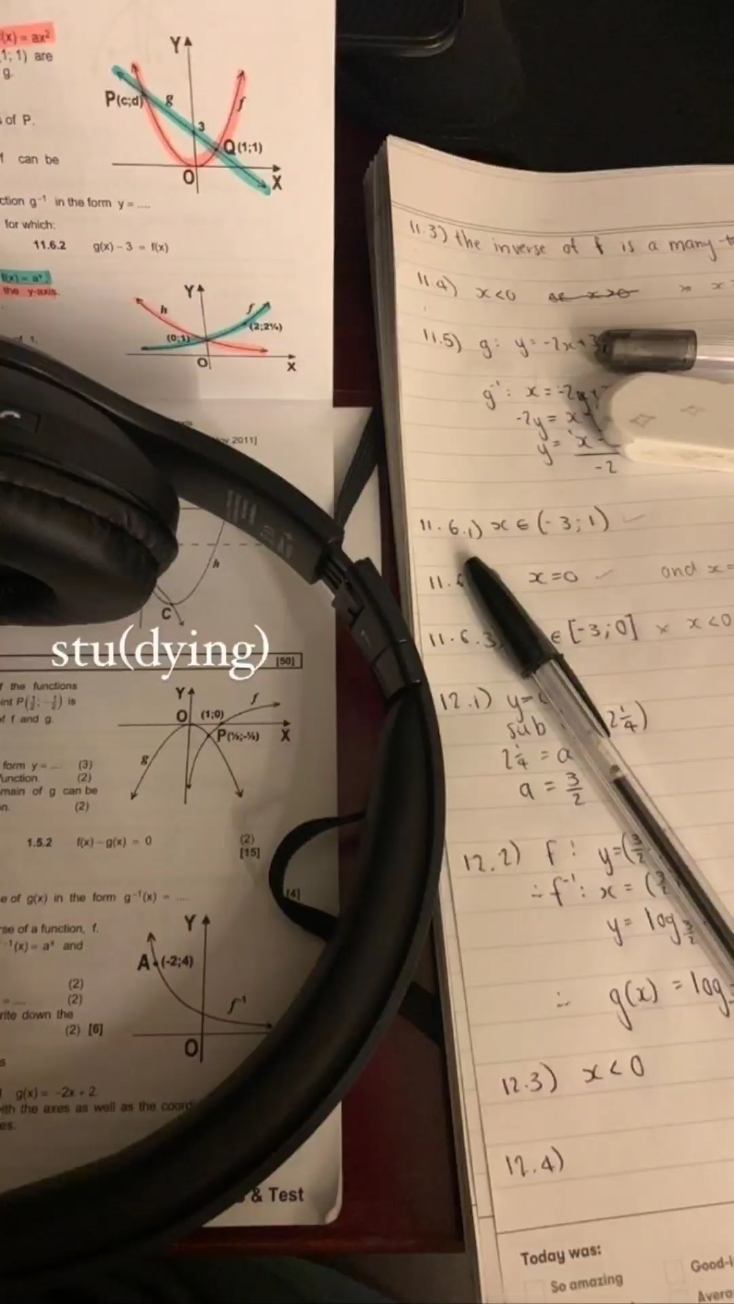 f(x) = ax²
1; 1) are
g.
of P.
f can be
ction g⁻¹ in the form y = ....
for which:
11.6.2 g(x) – 3 = f(x)
Y
P(c;d)
g
f
3
Q(1;1)
O
X
f(x) = aˣ.
the y-axis.
Y
h
f
(0;1)
(2;2¼)
O
X
2011]
h
C
stu(dying)
[50]
f the functions
int P(½;-½) is
of f and g.
form y = ... (3)
function. (2)
main of g can be
n. (2)
1.5.2 f(x) – g(x) = 0 (2)
[15]
Y
O
(1;0)
f
P(½;-¼)
X
g
e of g(x) in the form g⁻¹(x) = ....
[4]
rse of a function, f.
⁻¹(x) = aˣ and
(2)
= .... (2)
rite down the
(2) [6]
Y
A
(-2;4)
f⁻¹
O
g(x) = –2x + 2.
with the axes as well as the coord
es.
& Test
11.3) the inverse of f is a many-t
11.4) x<0
11.5) g: y=-2x+3
g⁻¹: x=-2y+
-2y = x
y = x -
-2
11.6.1) x ∈ (-3; 1)
x=0 and x=
11.6.3 ∈ [-3; 0] x<0
12.1) y=
sub 2¼)
2¼ = a
a = 3/2
12.2) f: y=(3/2
∴ f⁻¹: x = (3/2
y = log 3/2
∴ g(x) = log
12.3) x<0
12.4)
Today was:
So amazing
Good-
Avera